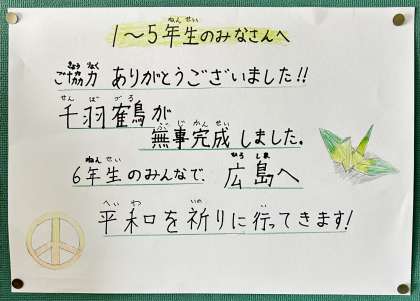 1〜5年生のみなさんへ
ご協力 ありがとうございました!!
千羽鶴が
無事完成しました。
6年生のみんなで 広島へ
平和を祈りに行ってきます!